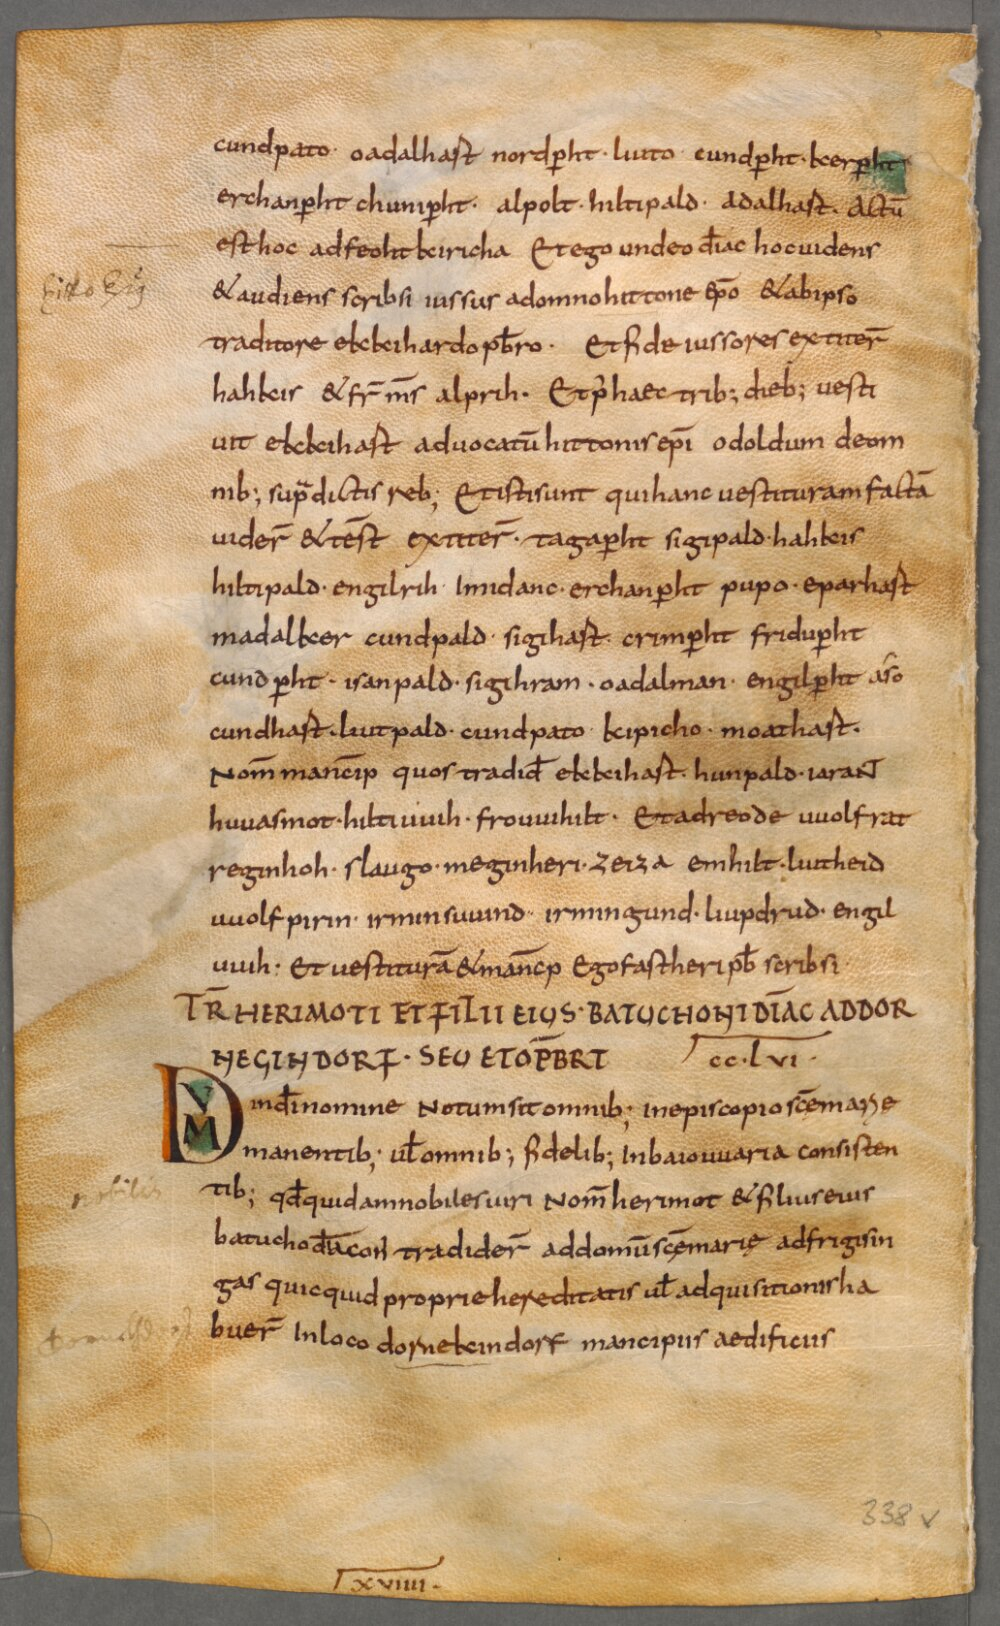 cundpato · oadalhast nordp̄ht · liuto · cundp̄ht · kerp̄ht
erchanp̄ht chunip̄ht · alpolt · hiltipald · adalhast · Actū
est hoc adfeohtkiricha Et ego undeo diāc hoc uidens
& audiens scribsi iussus adomno hittone ep̄o & abipso
traditore ekkihardo pb̄ro · Et fideiussores extiter̄
hahkis & fr̄ m̄s alprih · Et p̄ haec trib; dieb; uesti
uit ekkihast aduocatū hittonis ep̄i odoldum de om
nib; sup̄dictis reb; Et isti sunt qui hanc uestituram factā
uider̄ & tēst extiter̄ · tagap̄ht sigipald · hahkis
hiltipald · engilrih · Imidanc · erchanp̄ht pupo · eparhast
madalker cundpald · sigihast · crimp̄ht fridup̄ht
cundp̄ht · isanpald · sigihram · oadalman · engilp̄ht aso
cundhast · liutpald · cundpato kipicho · moathast ·
Nom̄ mancīp quos tradid̄ ekkihast · hunpald · iaraN
huuasmot · hiltiuuih · frouuihilt · Et adreode uuolfrat
reginhoh · slaugo · meginheri · zeiza emhilt · liutheid
uuolfpirin · irminsuuind · irmingund · liupdrud · engil
uuih : Et uestiturā & mancp̄ Ego fastheri pb̄ scribsi
TR̄ HERIMOTI ET FILII EIUS · BATUCHONI DIĀC AD DOR
NEGINDORF · SEU ET OP̄BRI CC·LVI ·
DVM in dī nomine Notum sit omnib; in episcopio scē mariae
manentib; ul̄ omnib; fidelib; In baiouuaria consisten
tib; qd̄ quidam nobiles uiri Nom̄ herimot & filius eius
batucho diacon̄ tradider̄ addomū scē marie adfrigisin
gas quicquid proprie hereditatis ul̄ adquisitionis ha
buer̄ In loco dornekindorf mancipiis aedificiis
nobilis
338 v
XVIIII ·